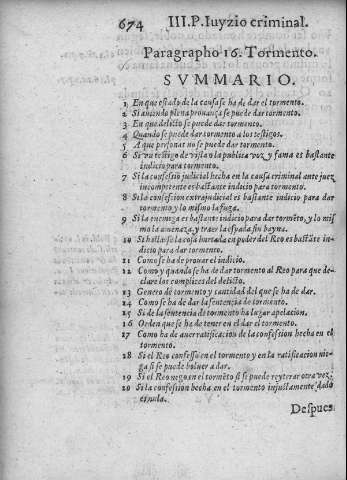 674 III.P.Iuyzio criminal.
Paragrapho 16. Tormento.
SVMMARIO.
1 En que estado de la causa se ha de dar el tormento.
2 Si auiendo plena prouança se puede dar tormento.
3 En que delicto se puede dar tormento.
4 Quando se puede dar tormento a los testigos.
5 A que personas no se puede dar tormento.
6 Si vn testigo de vista o la publica voz y fama es bastante
indicio para tormento.
7 Si la confessiõ judicial hecha en la causa criminal ante juez
incompetente es bastante indicio para tormento.
8 Si la confession extrajudicial es bastante indicio para dar
tormento y lo mismo la fuga.
9 Si la enemiga es bastante indicio para dar tormẽto, y lo mis
mo la amenaza y traer la espada sin bayna.
10 Si hallarse la cosa hurtada en poder del Reo es bastãte in-
dicio para dar tormento.
11 Como se ha de prouar el indicio.
12 Como y quando se ha de dar tormento al Reo para que de-
clare los complices del delicto.
13 Genero de tormento y cantidad del que se ha de dar.
14 Como se ha de dar la sentencia de tormento.
15 Si de la sentencia de tormento ha lugar apelacion.
16 Orden que se ha de tener en el dar el tormento.
17 Como ha de auer ratificacion de la confession hecha en el
tormento.
18 Si el Reo confesso en el tormento y en la ratificacion nie-
ga si se puede boluer a dar.
19 Si el Reo nego en el tormẽto si se puede reyterar otra vez.
20 Si la confession hecha en el tormento injustamente dado
es nula.
Despues